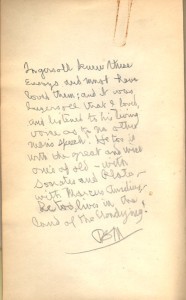 Ingersoll knew these
Essays and must have
loved them; and I love
Ingersoll, that I loved,
and listened to his living
voice as to no other
mans speech. He too is
with the great and wise
one's of old - with
Socrates and Plato -
with Marcus Aurelius.
He too, lives in the
land of the Undying.